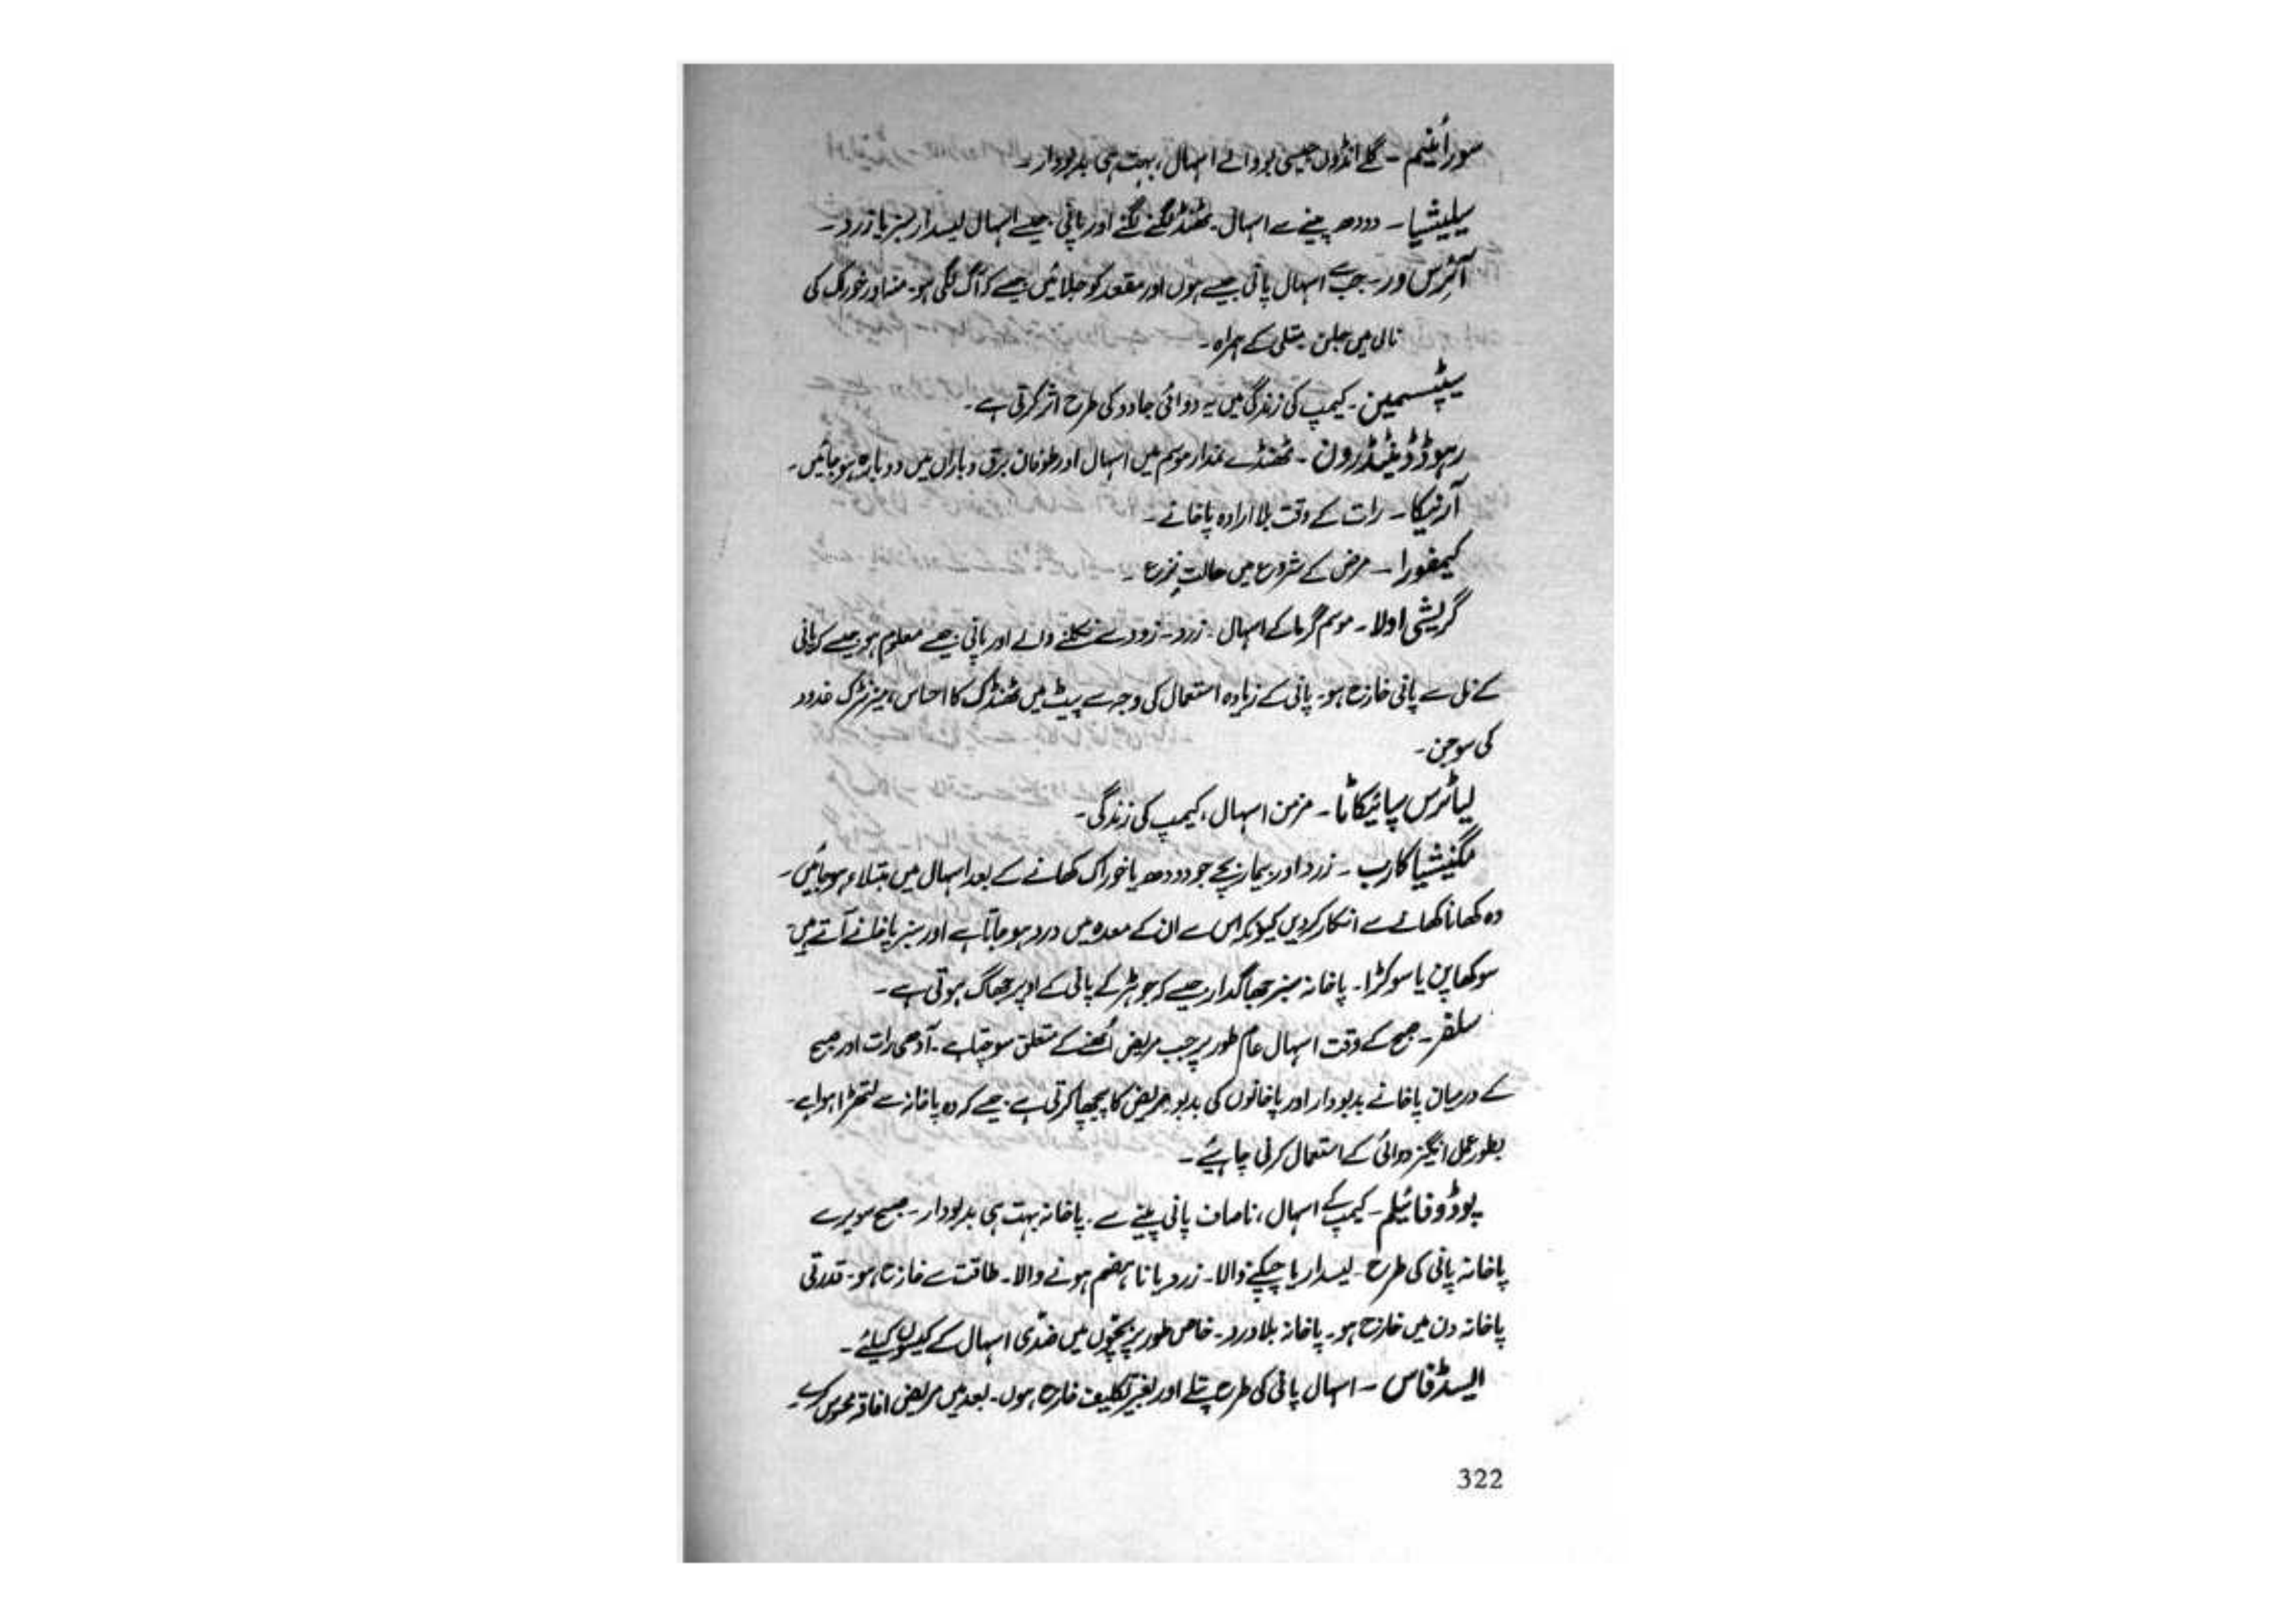 سورائینم - گلے انڈوں جیسی بو والے اسہال، بہت ہی بدبودار -
سیلیشیا - دودھ پینے سے اسہال - ٹھنڈ لگنے لگنے اور پانی جیسے اسہال لیسدار سبز یا زرد -
آئرس ور - جب اسہال پانی جیسے ہوں اور مقعد کو جلائیں جیسے کہ آگ لگی ہو - منہ اور خوراک کی
نالی میں جلن - متلی کے ہمراہ -
سیپٹسمین - کیمپ کی زندگی میں یہ دوائی جادو کی طرح اثر کرتی ہے -
رہوڈوڈینڈرون - ٹھنڈے نمدار موسم میں اسہال اور طوفان برق و باراں میں دوبارہ ہو جائیں -
آرنیکا - رات کے وقت بلا ارادہ پاخانے -
کیمفورا - مرض کے شروع میں حالتِ نزع -
گریشی اولا - موسم گرما کے اسہال - زرد - زور سے نکلنے والے اور پانی جیسے معلوم ہو جیسے کہ پانی
کے نل سے پانی خارج ہو - پانی کے زیادہ استعمال کی وجہ سے پیٹ میں ٹھنڈک کا احساس، میزنٹرک غدود
کی سوجن -
لیاٹرس سپائیکاٹا - مزمن اسہال، کیمپ کی زندگی -
مگنیشیا کارب - زرد اور بیمار بچے جو دودھ یا خوراک کھانے کے بعد اسہال میں مبتلاء ہو جائیں -
وہ کھانا کھانے سے انکار کر دیں کیونکہ اس سے ان کے معدہ میں درد ہو جاتا ہے اور سبز پاخانے آتے ہیں
سوکھاپن یا سوکڑا - پاخانہ سبز جھاگدار جیسے کہ جوہڑ کے پانی کے اوپر جھاگ ہوتی ہے -
سلفر - صبح کے وقت اسہال عام طور پر جب مریض اُٹھنے کے متعلق سوچتا ہے - آدھی رات اور صبح
کے درمیان پاخانے بدبودار اور پاخانوں کی بدبو مریض کا پیچھا کرتی ہے جیسے کہ وہ پاخانہ سے لتھڑا ہوا ہے -
بطور عمل انگیز دوائی کے استعمال کرنی چاہیئے -
پوڈوفائیلم - کیمپ کے اسہال، ناصاف پانی پینے سے - پاخانہ بہت ہی بدبودار - صبح سویرے
پاخانہ پانی کی طرح - لیسدار یا چپکنے والا - زرد یا نا ہضم ہونے والا - طاقت سے خارج ہو - قدرتی
پاخانہ دن میں خارج ہو - پاخانہ بلا درد - خاص طور پر بچوں میں ضدی اسہال کے کیسوں کیلئے -
ایسڈ فاس - اسہال پانی کی طرح پتلے اور بغیر تکلیف خارج ہوں - بعد میں مریض افاقہ محسوس کرے -
322